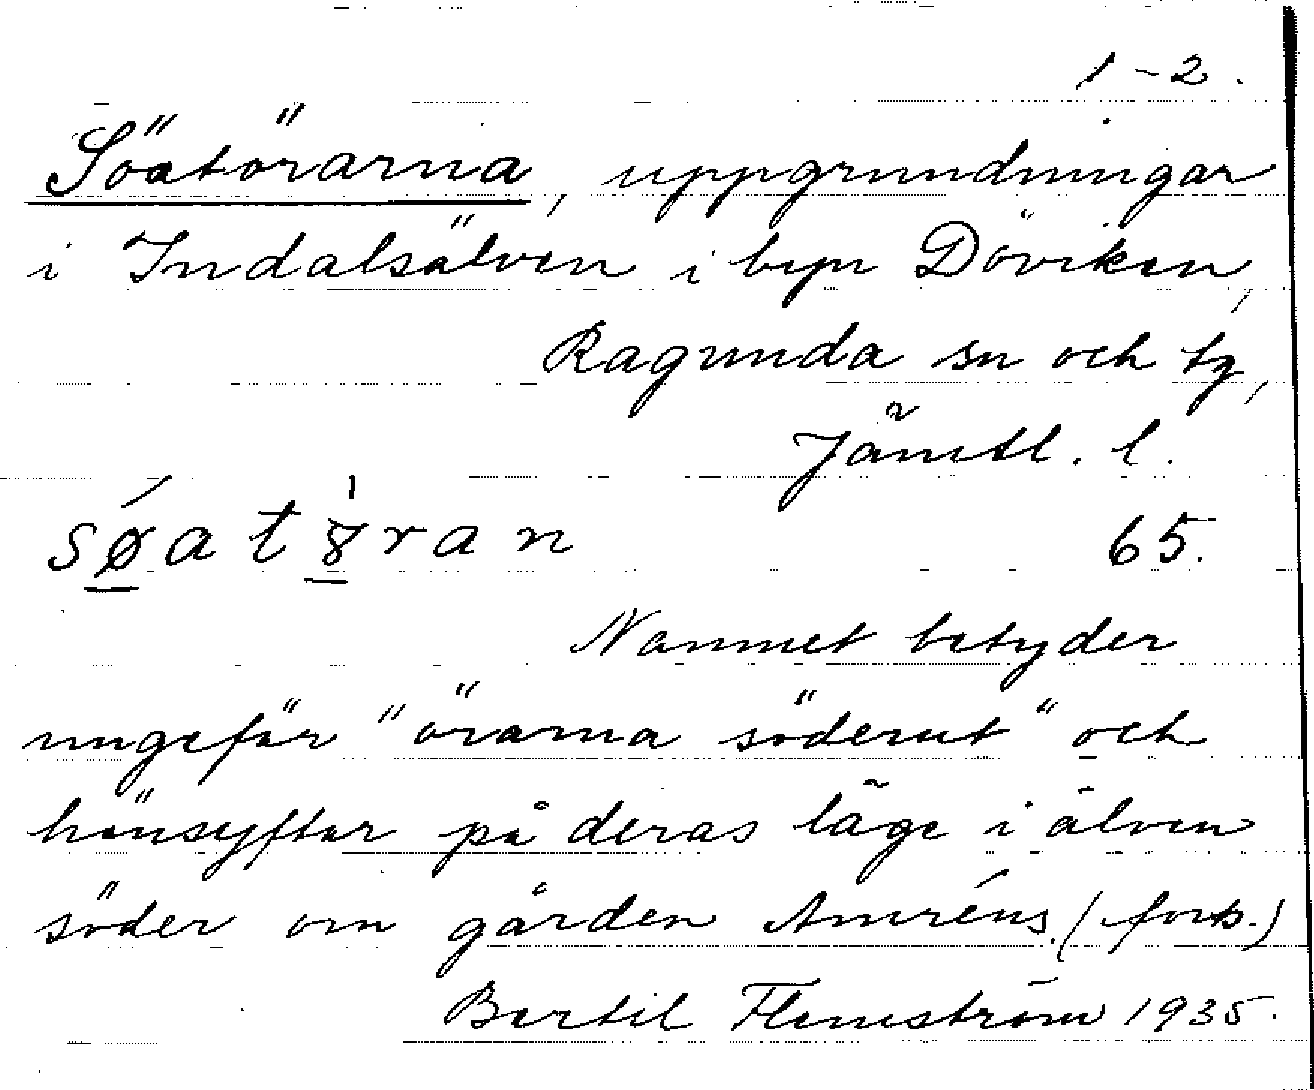 1-2.
Söatörarna, uppgrundningar
i Indalsälven i byn Döviken,
Ragunda sn och tg,
Jämtl. l.
søatȣran 65.
Namnet betyder
ungefär "örarna söderut" och
hänsyftar på deras läge i älven
söder om gården Amréns. (forts.)
Bertil Flemström 1935.